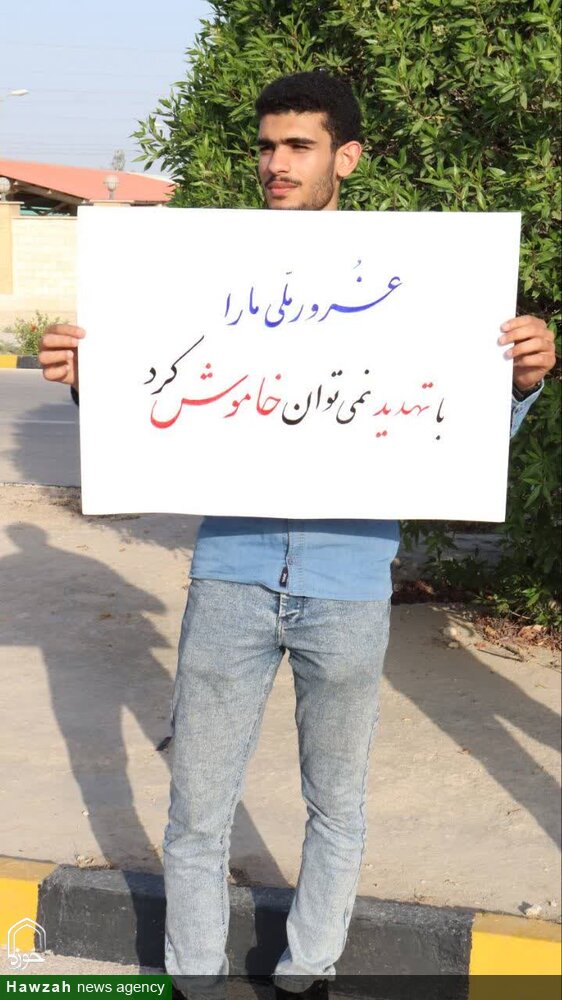 غُرور ملّی ما را
با تهدید نمی توان خاموش کرد
حوزه
Hawzah news agency